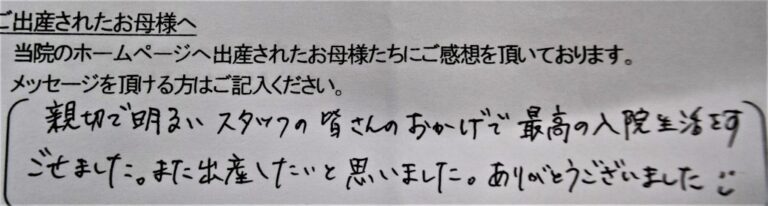 ご出産されたお母様へ
当院のホームページへ出産されたお母様たちにご感想を頂いております。
メッセージを頂ける方はご記入ください。
親切で明るいスタッフの皆さんのおかげで最高の入院生活をす
ごせました。また出産したいと思いました。ありがとうございました